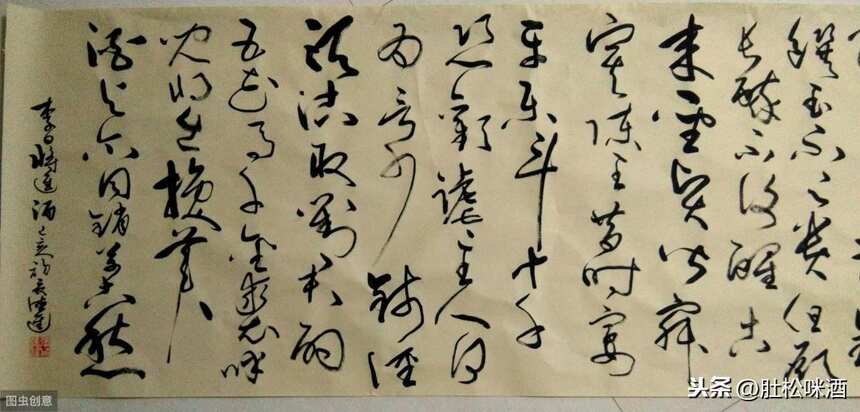 饌玉不足贵但愿
长醉不復醒古
来聖贤皆寂
寞陈王昔时宴
平乐斗十千
恣歡謔主人何
为言少钱径
须沽取对君酌
五花马千金裘呼
儿将出换美
酒与尔同銷万古愁
李白将進酒
头条@肚松咪酒
图虫创意